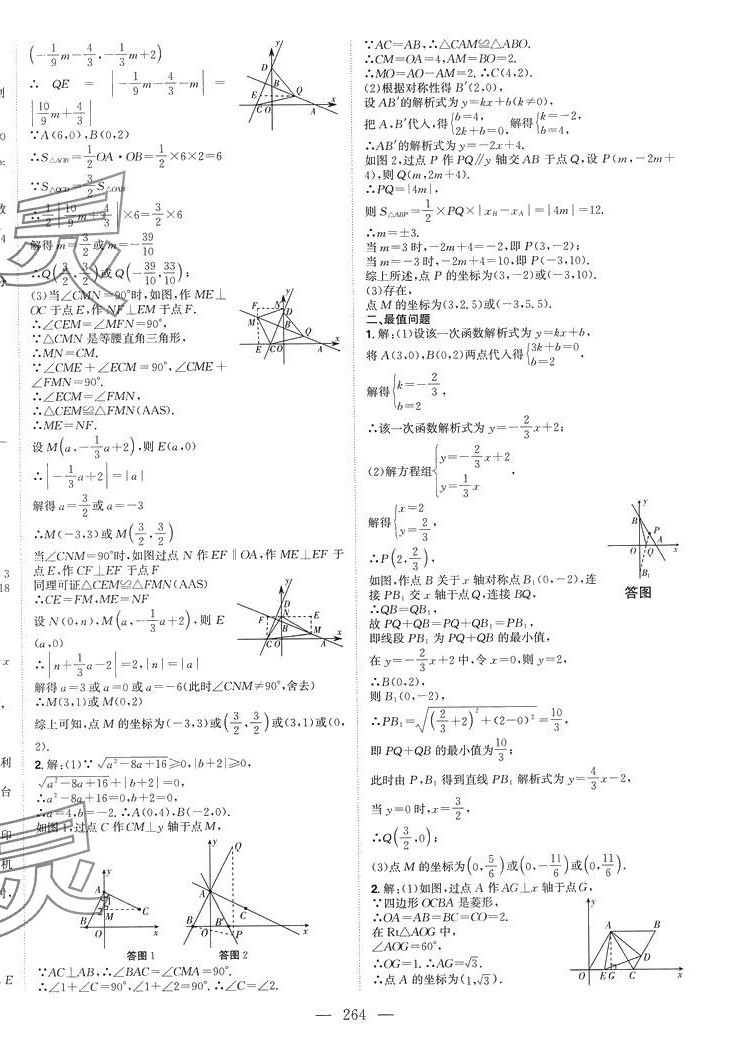 (-1/9m-4/3,-1/3m+2)
∴ QE = |-1/9m-4/3-m| =
|10/9m+4/3|
∵A(6,0),B(0,2)
∴S△AOB=1/2OA·OB=1/2×6×2=6
∵S△QCE=3/2S△OAB
∴1/2|10/9m+4/3|×6=3/2×6
解得m=3/2或m=-39/10
∴Q(3/2,3/2)或Q(-39/10,33/10);
(3)当∠CMN=90°时,如图,作ME⊥
OC于点E,作NF⊥EM于点F.
∴∠CEM=∠MFN=90°,
∵△CMN是等腰直角三角形,
∴MN=CM.
∵∠CME+∠ECM=90°,∠CME+
∠FMN=90°.
∴∠ECM=∠FMN,
∴△CEM≌△FMN(AAS).
∴ME=NF.
设M(a,-1/3a+2),则E(a,0)
∴|-1/3a+2|=|a|
解得a=3/2或a=-3
∴M(-3,3)或M(3/2,3/2)
当∠CNM=90°时,如图过点N作EF∥OA,作ME⊥EF于
点E,作CF⊥EF于点F
同理可证△CEM≌△FMN(AAS)
∴CE=FM,ME=NF
设N(0,n),M(a,-1/3a+2),则E
(a,0)
∴|n+1/3a-2|=2,|n|=|a|
解得a=3或a=0或a=-6(此时∠CNM≠90°,舍去)
∴M(3,1)或M(0,2)
综上可知,点M的坐标为(-3,3)或(3/2,3/2)或(3,1)或(0,
2).
2.解:(1)∵√(a²-8a+16)≥0,|b+2|≥0,
√(a²-8a+16)+|b+2|=0,
∴a²-8a+16=0,b+2=0,
∴a=4,b=-2.∴A(0,4),B(-2,0).
如图1,过点C作CM⊥y轴于点M,
答图1 答图2
∵AC⊥AB,∴∠BAC=∠CMA=90°.
∴∠1+∠C=90°,∠1+∠2=90°.∴∠C=∠2.
∵AC=AB,∴△CAM≌△ABO.
∴CM=OA=4,AM=BO=2.
∴MO=AO-AM=2.∴C(4,2).
(2)根据对称性得B′(2,0),
设AB′的解析式为y=kx+b(k≠0),
把A,B′代入,得{b=4, 2k+b=0, 解得{k=-2, b=4,
∴AB′的解析式为y=-2x+4.
如图2,过点P作PQ∥y轴交AB于点Q,设P(m,-2m+
4),则Q(m,2m+4).
∴PQ=|4m|,
则S△ABP=1/2×PQ×|xB-xA|=|4m|=12.
∴m=±3.
当m=3时,-2m+4=-2,即P(3,-2);
当m=-3时,-2m+4=10,即P(-3,10).
综上所述,点P的坐标为(3,-2)或(-3,10).
(3)存在,
点M的坐标为(3,2.5)或(-3,5.5).
二、最值问题
1.解:(1)设该一次函数解析式为y=kx+b,
将A(3,0),B(0,2)两点代入得{3k+b=0 b=2,
解得{k=-2/3, b=2
∴该一次函数解析式为y=-2/3x+2;
(2)解方程组{y=-2/3x+2 y=1/3x,
解得{x=2 y=2/3,
∴P(2,2/3),
如图,作点B关于x轴对称点B₁(0,-2),连
接PB₁交x轴于点Q,连接BQ,
∴QB=QB₁,
故PQ+QB=PQ+QB₁=PB₁,
即线段PB₁为PQ+QB的最小值,
在y=-2/3x+2中,令x=0,则y=2,
∴B(0,2),
则B₁(0,-2),
∴PB₁=√((2/3+2)²+(2-0)²)=10/3,
即PQ+QB的最小值为10/3;
此时由P,B₁得到直线PB₁解析式为y=4/3x-2,
当y=0时,x=3/2,
∴Q(3/2,0);
(3)点M的坐标为(0,5/6)或(0,-11/6)或(0,11/6).
答图
2.解:(1)如图,过点A作AG⊥x轴于点G,
∵四边形OCBA是菱形,
∴OA=AB=BC=CO=2.
在Rt△AOG中,
∠AOG=60°,
∴OG=1.∴AG=√3.
∴点A的坐标为(1,√3).
— 264 —